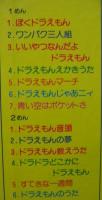 1めん
1.ぼくドラえもん
2.ワンパク三人組
3.いいやつなんだよ
ドラえもん
4.ドラえもんえかきうた
5.ドラえもんマーチ
6.ドラえもんじゃあニィ
7.青い空はポケットさ
2めん
1.ドラえもん音頭
2.ドラえもんの夢
3.ドラえもん数えうた
4.ドラドラどこかに
ドラえもん
5.すてきな一週間
6.ドラえもんのうた